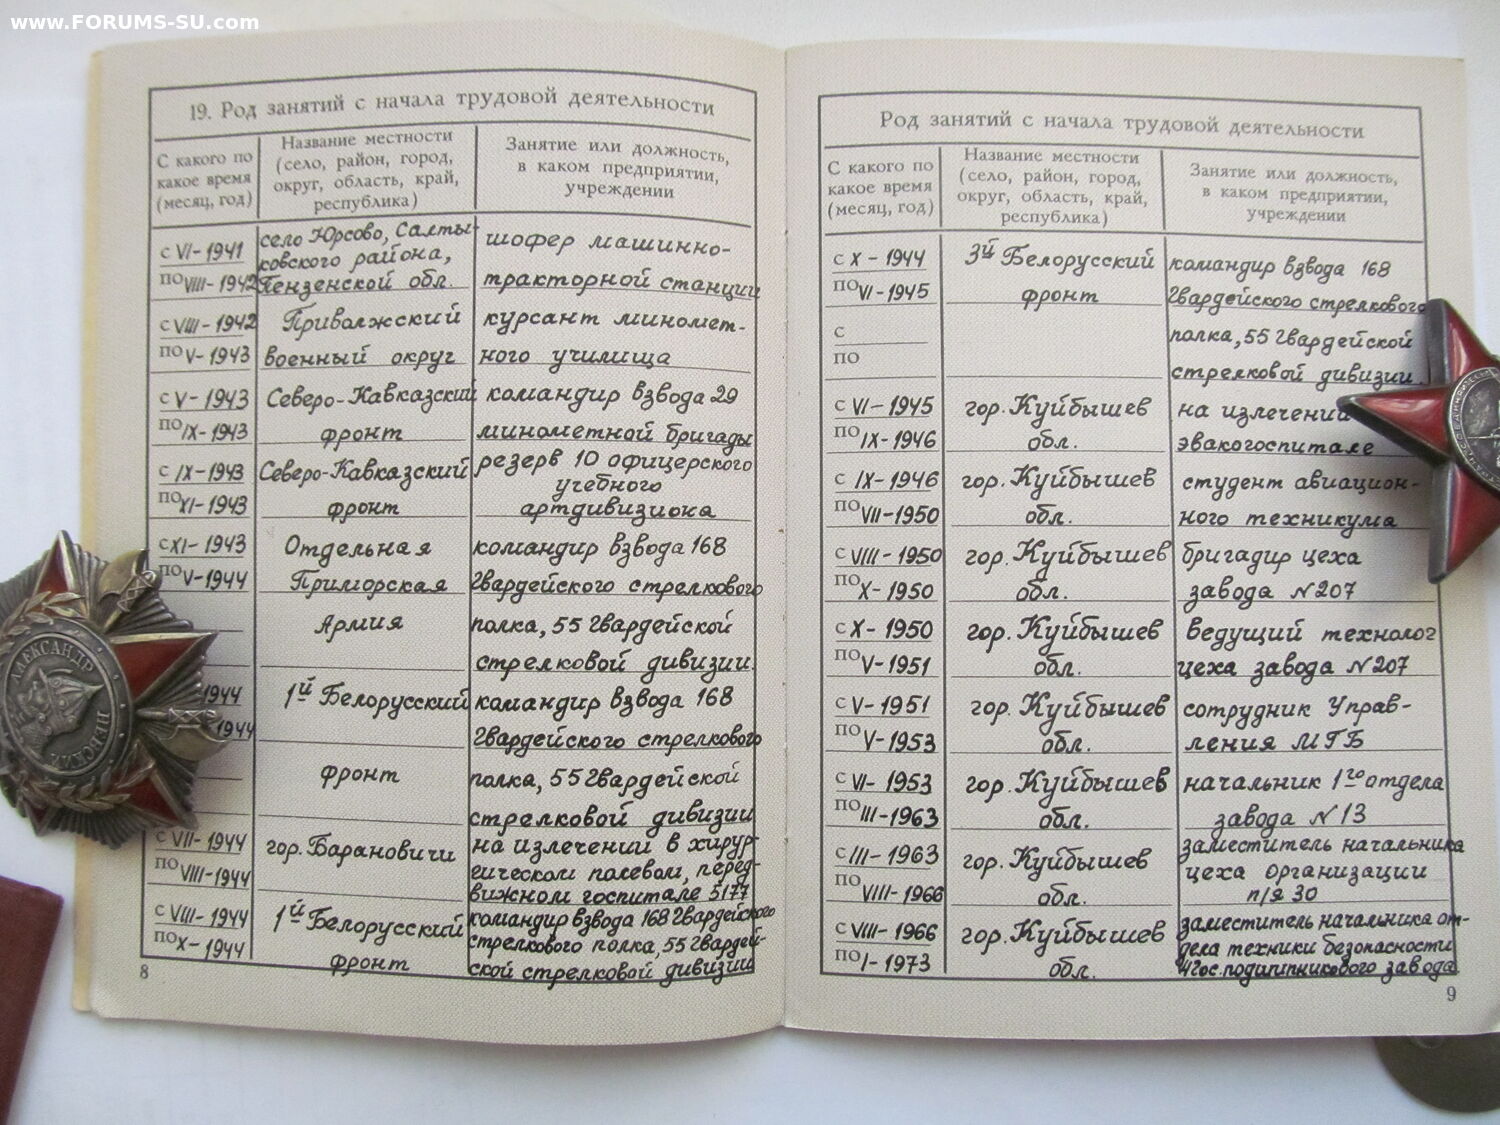 www.FORUMS-SU.com
19. Род занятий с начала трудовой деятельности
С какого по
какое время
(месяц, год)
Название местности
(село, район, город,
округ, область, край,
республика)
Занятие или должность,
в каком предприятии,
учреждении
с VI-1941
по VIII-1942
село Юрсово, Салты-
ковского района,
Пензенской обл.
шофер машинно-
тракторной станции
с VIII-1942
по V-1943
Приволжский
военный округ
курсант миномет-
ного училища
с V-1943
по IX-1943
Северо-Кавказский
фронт
командир взвода 29
минометной бригады
с IX-1943
по XI-1943
Северо-Кавказский
фронт
резерв 10 офицерского
учебного
артдивизиона
с XI-1943
по V-1944
Отдельная
Приморская
Армия
командир взвода 168
гвардейского стрелкового
полка, 55 гвардейской
стрелковой дивизии.
1944
1944
1й Белорусский
фронт
командир взвода 168
гвардейского стрелкового
полка, 55 гвардейской
стрелковой дивизии
с VII-1944
по VIII-1944
гор. Барановичи
на излечении в хирур-
гическом полевом, перед-
вижном госпитале 5177
с VIII-1944
по X-1944
1й Белорусский
фронт
командир взвода 168 гвардейского
стрелкового полка, 55 гвардей-
ской стрелковой дивизии
8
Род занятий с начала трудовой деятельности
С какого по
какое время
(месяц, год)
Название местности
(село, район, город,
округ, область, край,
республика)
Занятие или должность,
в каком предприятии,
учреждении
с X-1944
по VI-1945
3й Белорусский
фронт
командир взвода 168
гвардейского стрелкового
с
по
полка, 55 гвардейской
стрелковой дивизии.
с VI-1945
по IX-1946
гор. Куйбышев
обл.
на излечении
эвакогоспитале
с IX-1946
по VII-1950
гор. Куйбышев
обл.
студент авиацион-
ного техникума
с VIII-1950
по X-1950
гор. Куйбышев
обл.
бригадир цеха
завода №207
с X-1950
по V-1951
гор. Куйбышев
обл.
ведущий технолог
цеха завода №207
с V-1951
по V-1953
гор. Куйбышев
обл.
сотрудник Управ-
ления МГБ
с VI-1953
по III-1963
гор. Куйбышев
обл.
начальник 1го отдела
завода №13
с III-1963
по VIII-1966
гор. Куйбышев
обл.
заместитель начальника
цеха организации
п/я 30
с VIII-1966
по I-1973
гор. Куйбышев
обл.
заместитель начальника от-
дела техники безопасности
4 гос. подшипникового завода.
9
АЛЕКСАНДР
НЕВСКИЙ